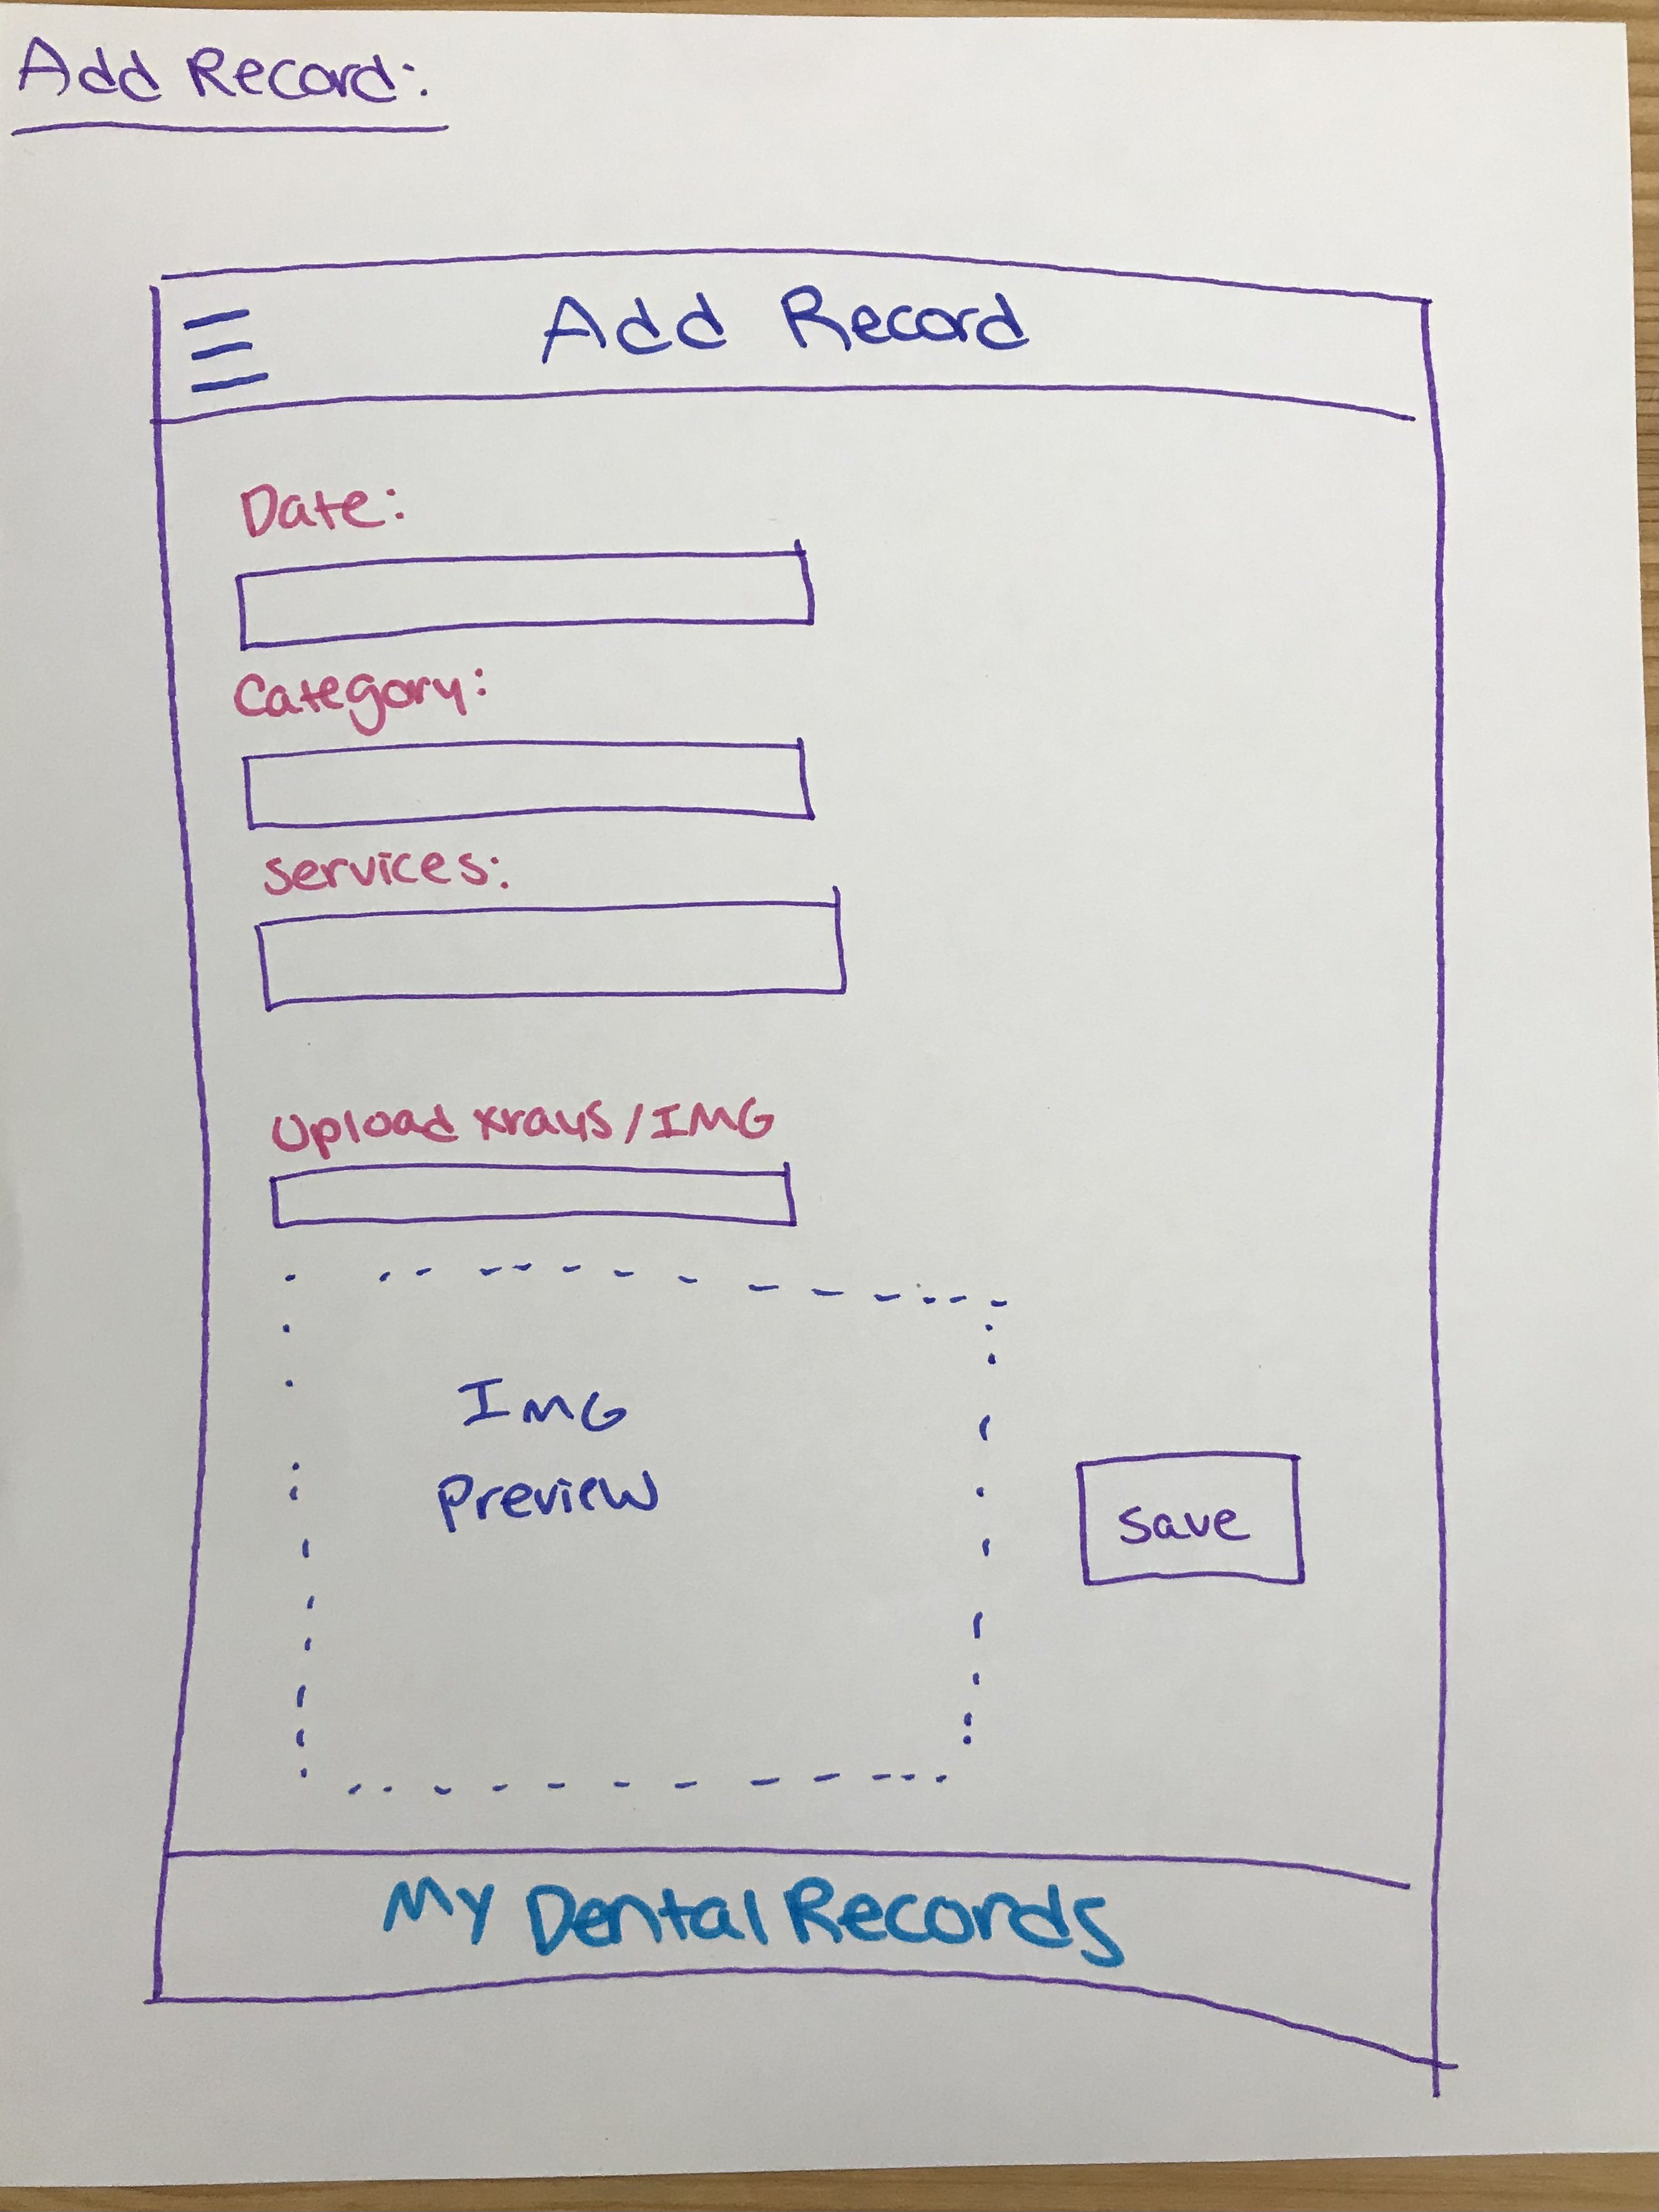 Add Record:
Add Record
Date:
Category:
Services:
Upload xrays/IMG
IMG
Preview
save
My Dental Records